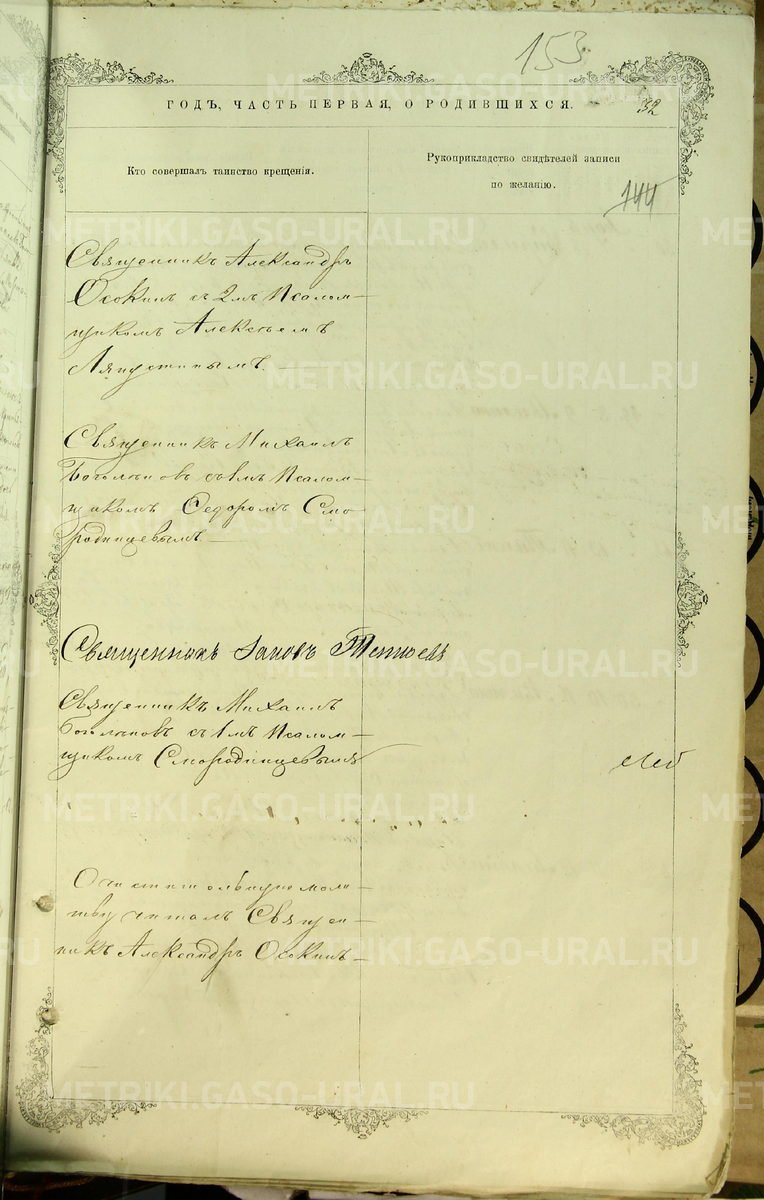 153
ГОДЪ, ЧАСТЬ ПЕРВАЯ, О РОДИВШИХСЯ.
32
Кто совершалъ таинство крещенія.
Рукоприкладство свидѣтелей записи
по желанію.
144
Священникъ Александръ
Осокинъ съ 2мъ Псалом-
щикомъ Алексѣемъ
Ляпустинымъ.
Священникъ Михаилъ
съ 1мъ Псалом-
щикомъ Ѳедоромъ Смо
родинцевымъ.
Священникъ
Священникъ Михаилъ
съ 1мъ Псалом-
щикомъ Смородинцевымъ
Очистительную моли-
тву читалъ Священ-
никъ Александръ Осокинъ
METRIKI.GASO-URAL.RU